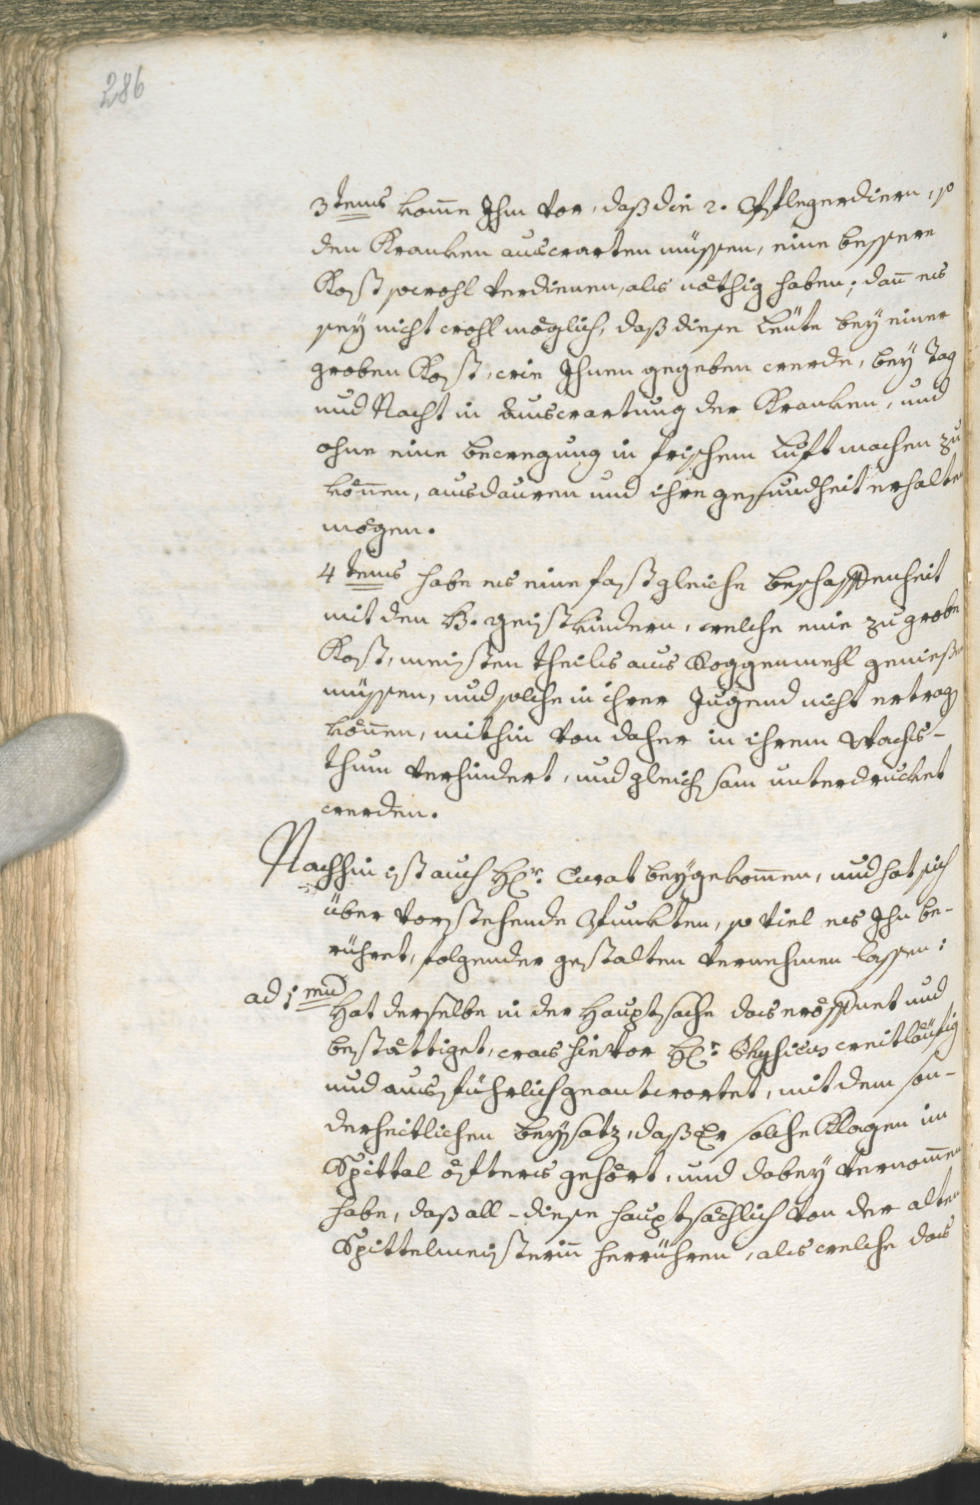 286
3tens kom̄e Ihm vor, daß die 2. Pflegerdiern, so
den Kranken auswarten müssen, eine bessere
Kost sowohl verdienen, als nöthig haben; dan̄ es
seÿ nicht wohl möglich, daß diese Leüte beÿ einer
groben Kost, wie Ihnen gegeben werde, beÿ Tag
und Nacht in Auswartung der Kranken, und
ohne eine bewegung in frischem Luft machen zu
kön̄en, ausdauren und ihre gesundheit erhalten
mögen.
4tens habe es eine fast gleiche beschaffenheit
mit den H. geistkindern, welche eine zu grobe
Kost, meisten theils aus Roggenmehl genießen
müssen, und solche in ihrer Jugend nicht ertrag
kön̄en, mithin von daher in ihrem Wachs-
thum verhindert, und gleichsam unterdrucket
werden.
Nachhin ist auch Hr. Curat beÿgekom̄en, und hat sich
über vorstehende Punkten, so viel es Ihn be-
rühret, folgender gestalten vernehmen lassen:
ad 1mū
Hat derselbe in der Hauptsache das eröffnet und
bestättiget, was hievor Hr. Physicus weitläufig
und ausführlich geantwortet, mit dem son-
derheitlichen beÿsatz, daß Er solche Klagen im
Spittal öfters gehört, und dabeÿ vernom̄en
habe, daß all-diese hauptsächlich von der alten
Spittelmeisterin̄ herrühren, als welche das